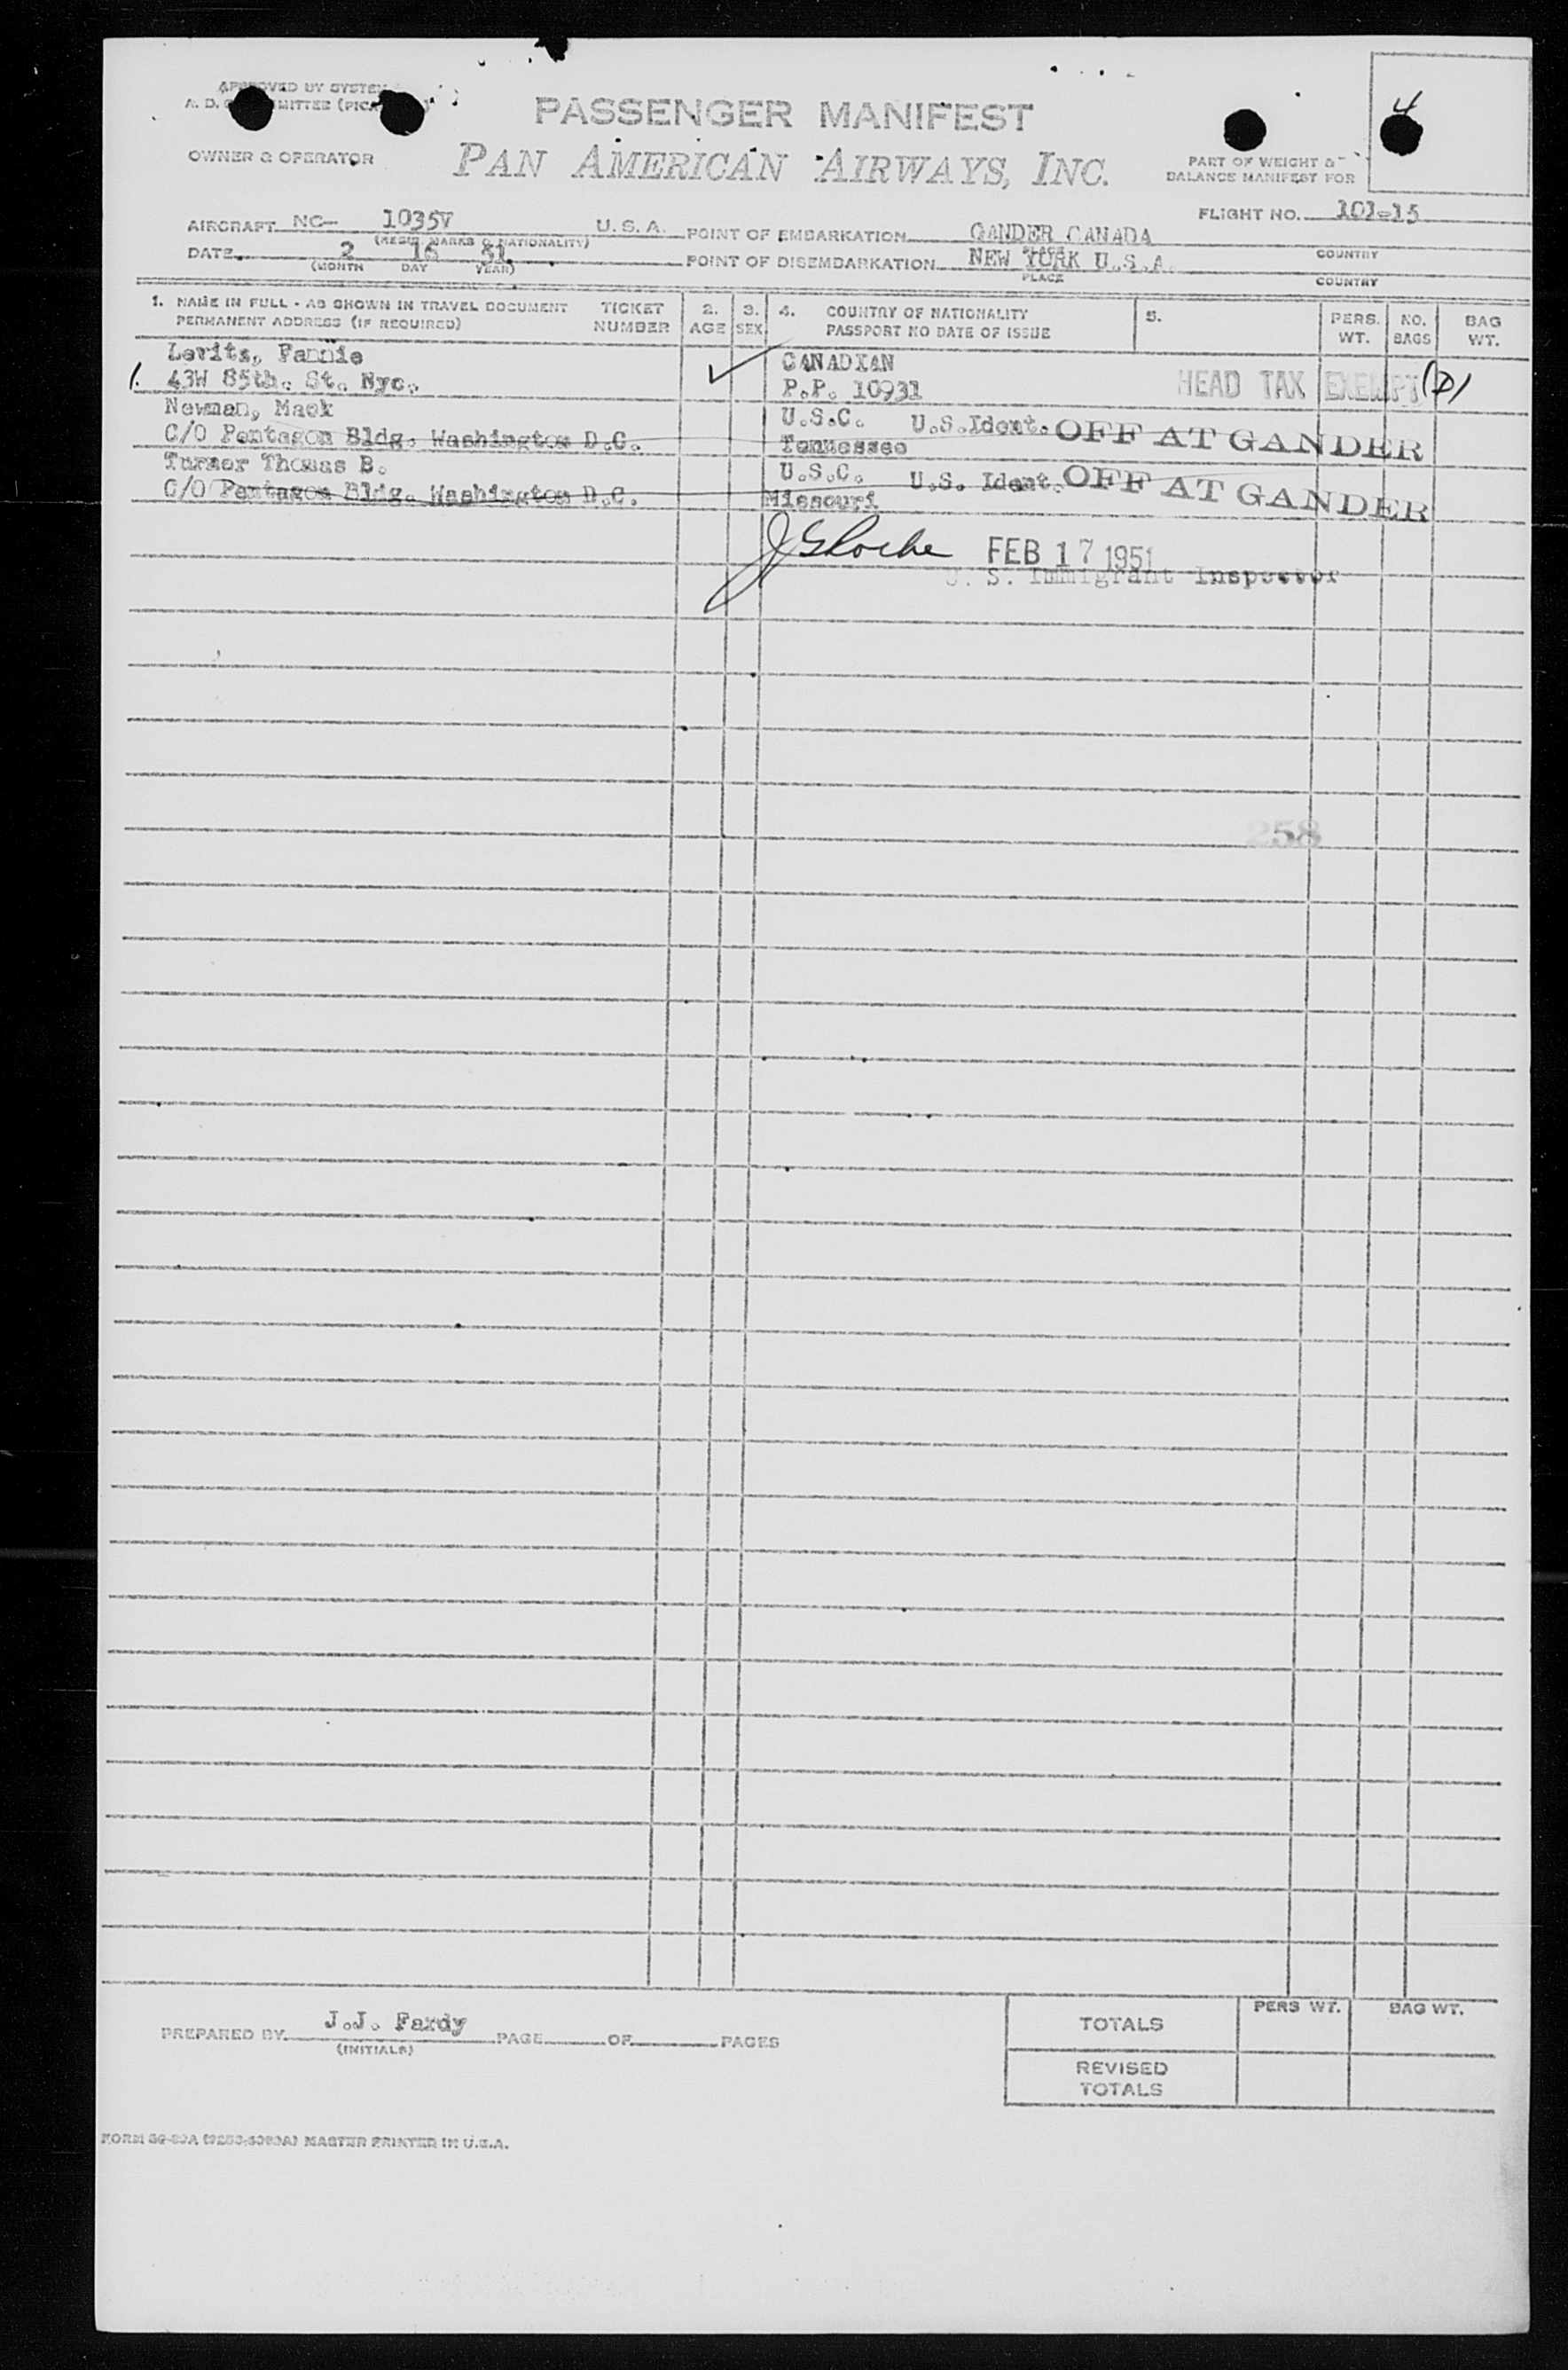 APPROVED BY SYSTEM
A. D. COMMITTEE (PICA
4
PASSENGER MANIFEST
OWNER & OPERATOR
PAN AMERICAN AIRWAYS, INC.
PART OF WEIGHT &
BALANCE MANIFEST FOR
AIRCRAFT NC- 1035V U.S.A.
(REGIS. MARKS & NATIONALITY)
POINT OF EMBARKATION GANDER CANADA
PLACE COUNTRY
FLIGHT NO. 101-15
DATE 2 16 51
(MONTH DAY YEAR)
POINT OF DISEMBARKATION NEW YORK U.S.A.
PLACE COUNTRY
1. NAME IN FULL - AS SHOWN IN TRAVEL DOCUMENT
PERMANENT ADDRESS (IF REQUIRED)
TICKET
NUMBER
2.
AGE
3.
SEX
4. COUNTRY OF NATIONALITY
PASSPORT NO DATE OF ISSUE
5.
PERS.
WT.
NO.
BAGS
BAG
WT.
Levits, Fannie CANADIAN
1. 43W 85th. St. Nyc. ✓ P.P. 10931 HEAD TAX EXEMPT (D)
Newman, Mack U.S.C. U.S.Ident. OFF AT GANDER
C/O Pentagon Bldg. Washington D.C. Tennessee
Turner Thomas B. U.S.C. U.S. Ident. OFF AT GANDER
C/O Pentagon Bldg. Washington D.C. Missouri
FEB 17 1951
U. S. Immigrant Inspector
258
PREPARED BY J.J. Fardy PAGE OF PAGES
(INITIALS)
TOTALS
PERS WT.
BAG WT.
REVISED
TOTALS
MASTER PRINTED IN U.S.A.